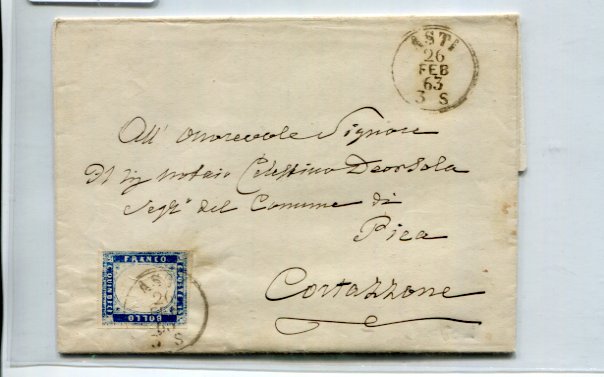 ASTI
26
FEB
63
3 S
All' onorevole Signore
Il Sig notaio Celestino Deorsola
Segr.o del Comune di
Piea
Cortazzone
FRANCO
C. QUINDICI
POSTE
BOLLO
ASTI
26
3 S